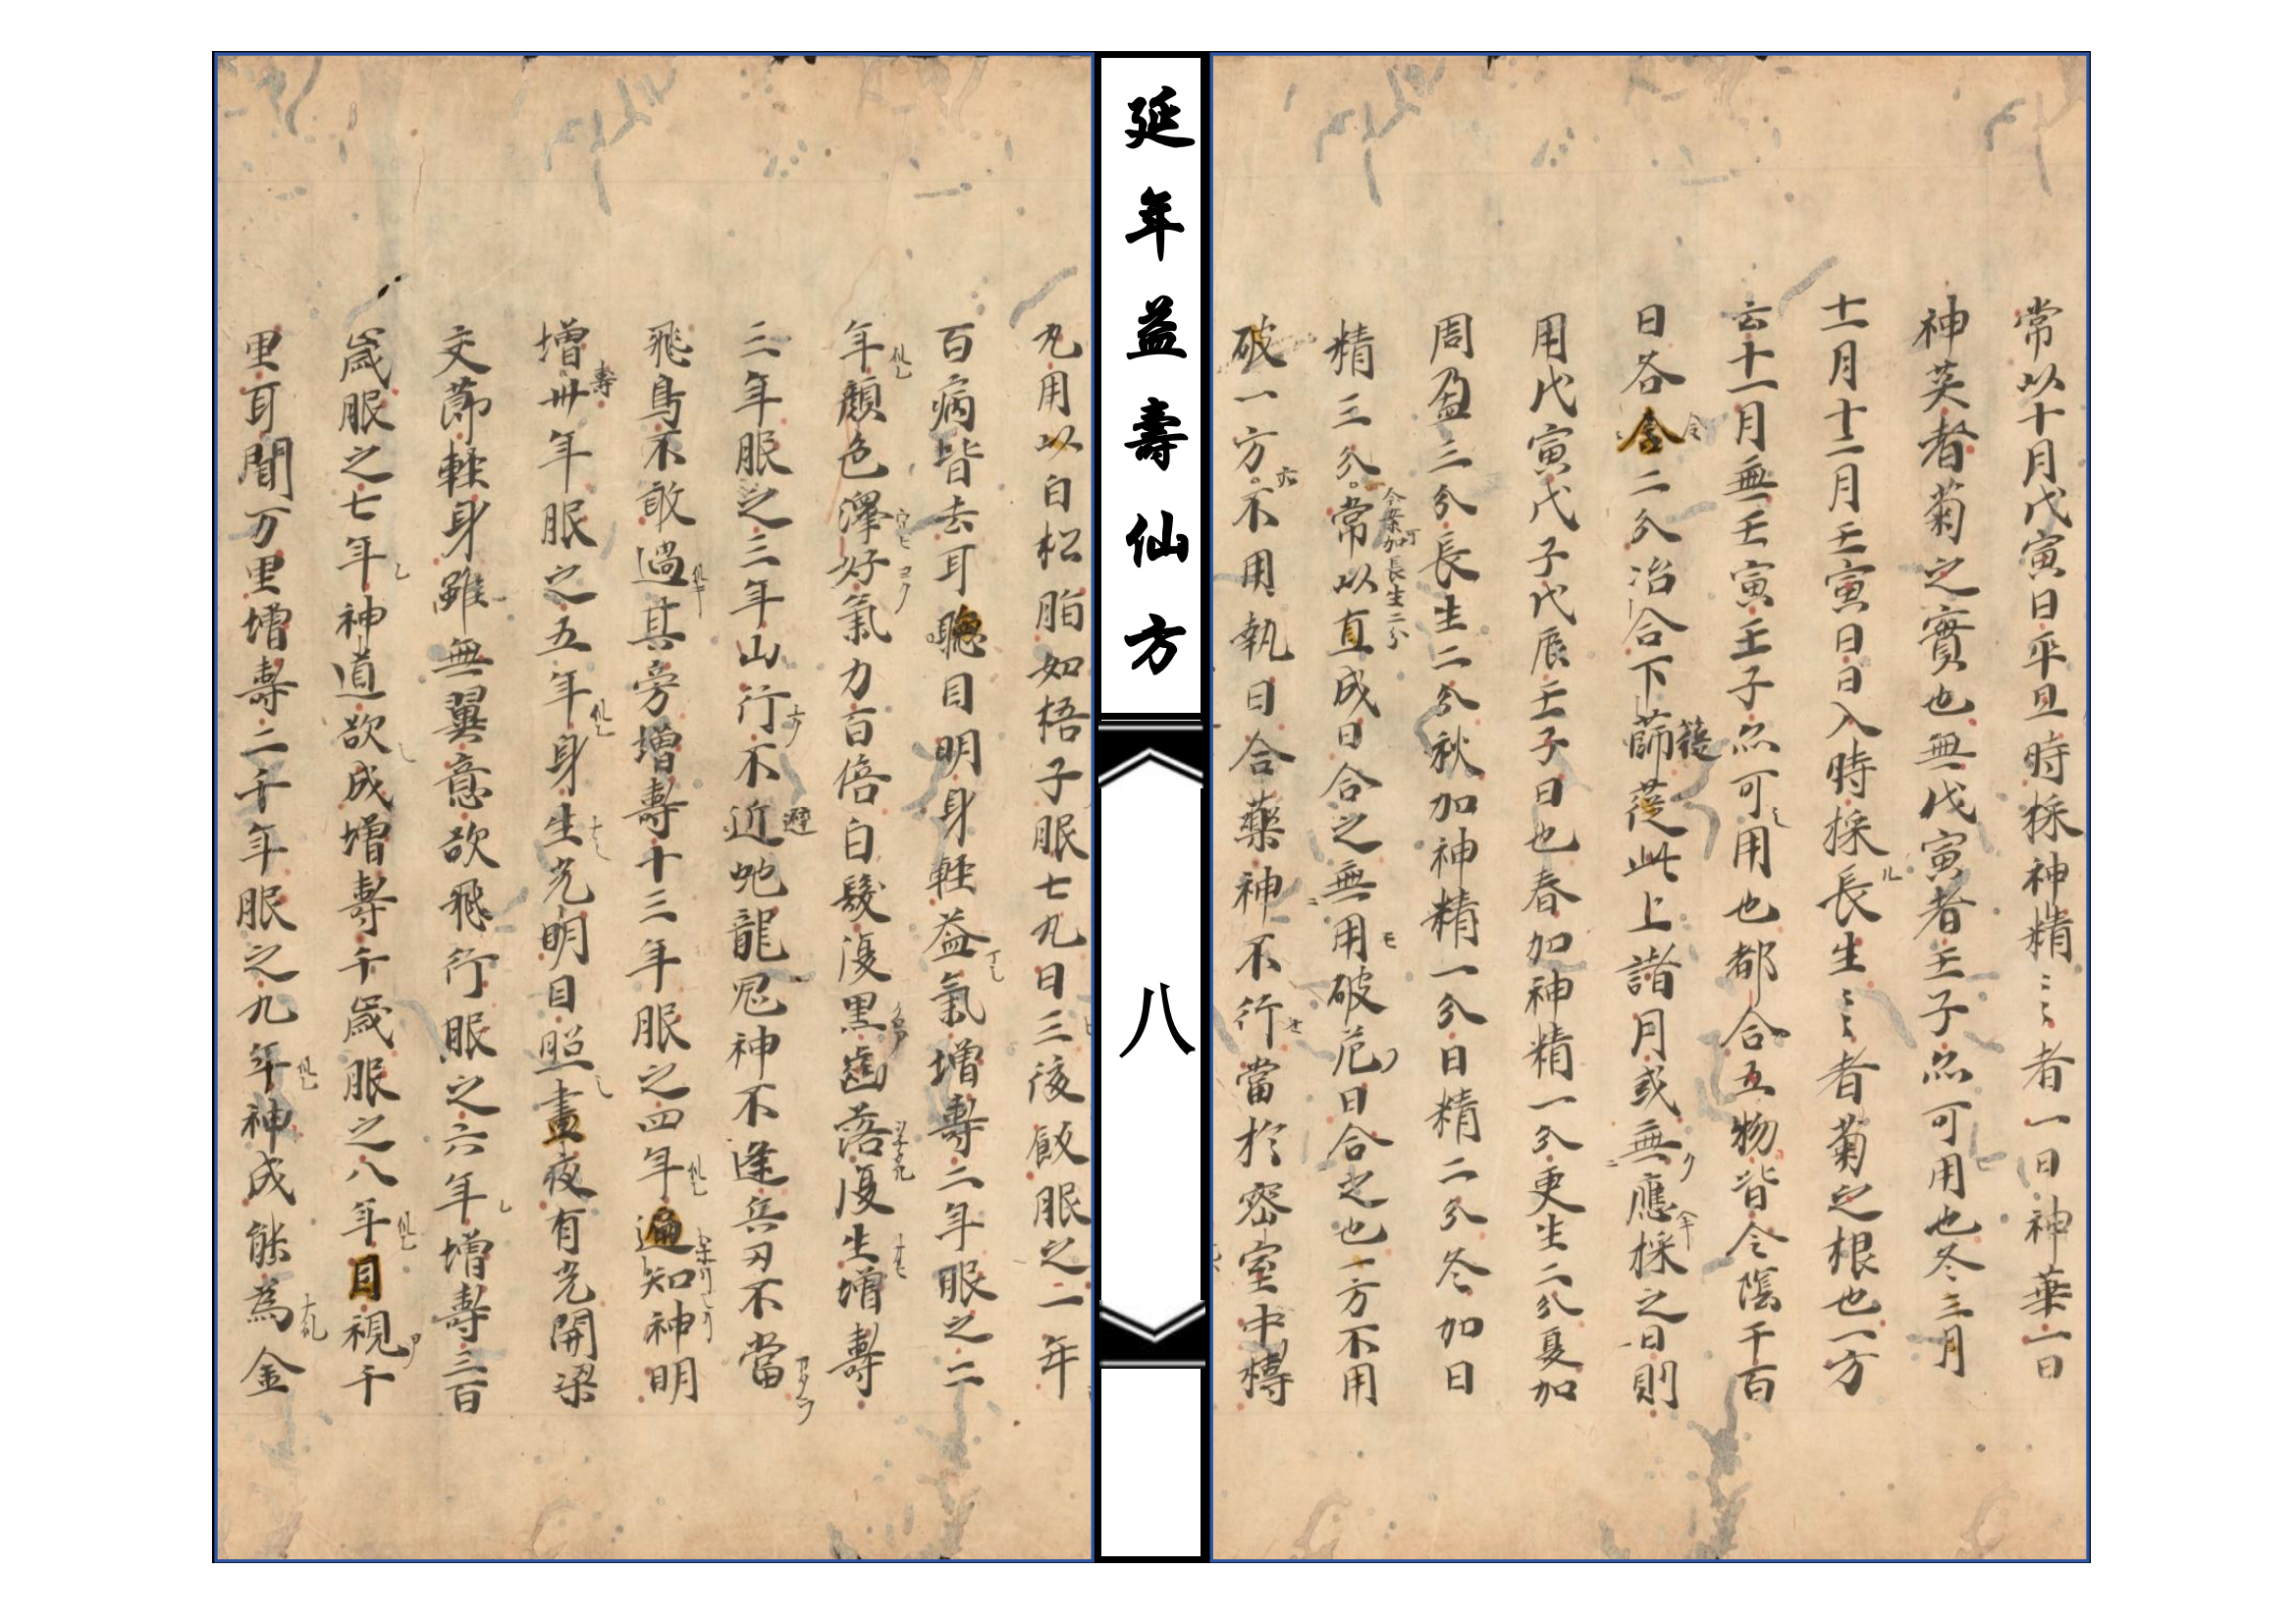 常以十月戊寅日平旦時採神精〻〻者一曰神華一曰
神英者菊之實也無戊寅者壬子亦可用也冬三月
十一月十二月壬寅日日入時採長生〻〻者菊之根也一方
云十一月無壬寅壬子亦可用也都合五物皆令陰干百
日各令二分冶合下篩從此上諸月或無應採之日則
用戊寅戊子戊辰壬子日也春加神精一分更生二分夏加
周盈三分長生二分秋加神精一分日精二分冬加日
精三分常以直成日合之無用破危日合之也一方不用
令案加長生二分
破一方不用執日合藥神不行當於密室中搏
延年益壽仙方
八
丸用以白松脂如梧子服七丸日三後飯服之一年
百病皆去耳聰目明身輕益氣增壽二年服之二
年顏色澤好氣力百倍白髮復黑齒落復生增壽
三年服之三年山行不近蛇龍鬼神不逢兵刃不當
避
飛鳥不敢過其旁增壽十三年服之四年遍知神明
增卌年服之五年身生光明目照晝夜有光開梁
壽
交節輕身雖無翼意欲飛行服之六年增壽三百
歲服之七年神道欲成增壽千歲服之八年目視千
里耳聞万里增壽二千年服之九年神成能為金